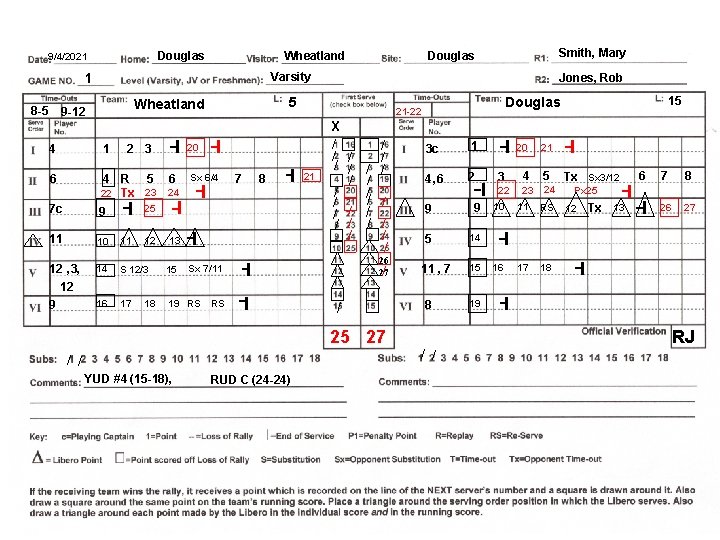 Date: 9/4/2021 Home: Douglas Visitor: Wheatland Site: Douglas R1: Smith, Mary
GAME NO. 1 Level (Varsity, JV or Freshmen): Varsity R2: Jones, Rob
Time-Outs Team: Wheatland L: 5 First Serve (check box below) Time-Outs Team: Douglas L: 15
8-5 9-12 21-22
Serve Order Player No. X Serve Order Player No.
I 4 1 2 3 20 I 3c 1 20 21
II 6 4 R 5 6 Sx 6/4 7 8 21 II 4,6 2 3 4 5 Tx Sx3/12 6 7 8
22 Tx 23 24 22 23 24 Px25
III 7c 9 25 III 9 9 10 11 RS 12 Tx 13 26 27
IV 11 10 11 12 13 IV 5 14
V 12 ,3, 14 S 12/3 15 Sx 7/11 V 11 , 7 15 16 17 18
12
VI 9 16 17 18 19 RS RS VI 8 19
26
27
25 27 Official Verification RJ
Subs: 1 2 3 4 5 6 7 8 9 10 11 12 13 14 15 16 17 18 Subs: 1 2 3 4 5 6 7 8 9 10 11 12 13 14 15 16 17 18
Comments: YUD #4 (15-18), RUD C (24-24) Comments:
Key: c=Playing Captain 1=Point –=Loss of Rally |=End of Service P1=Penalty Point R=Replay RS=Re-Serve
=Libero Point =Point scored off Loss of Rally S=Substitution Sx=Opponent Substitution T=Time-out Tx=Opponent Time-out
If the receiving team wins the rally, it receives a point which is recorded on the line of the NEXT server's number and a square is drawn around it. Also
draw a square around the same point on the team's running score. Place a triangle around the serving order position in which the Libero serves. Also
draw a triangle around each point made by the Libero in the individual score and in the running score.